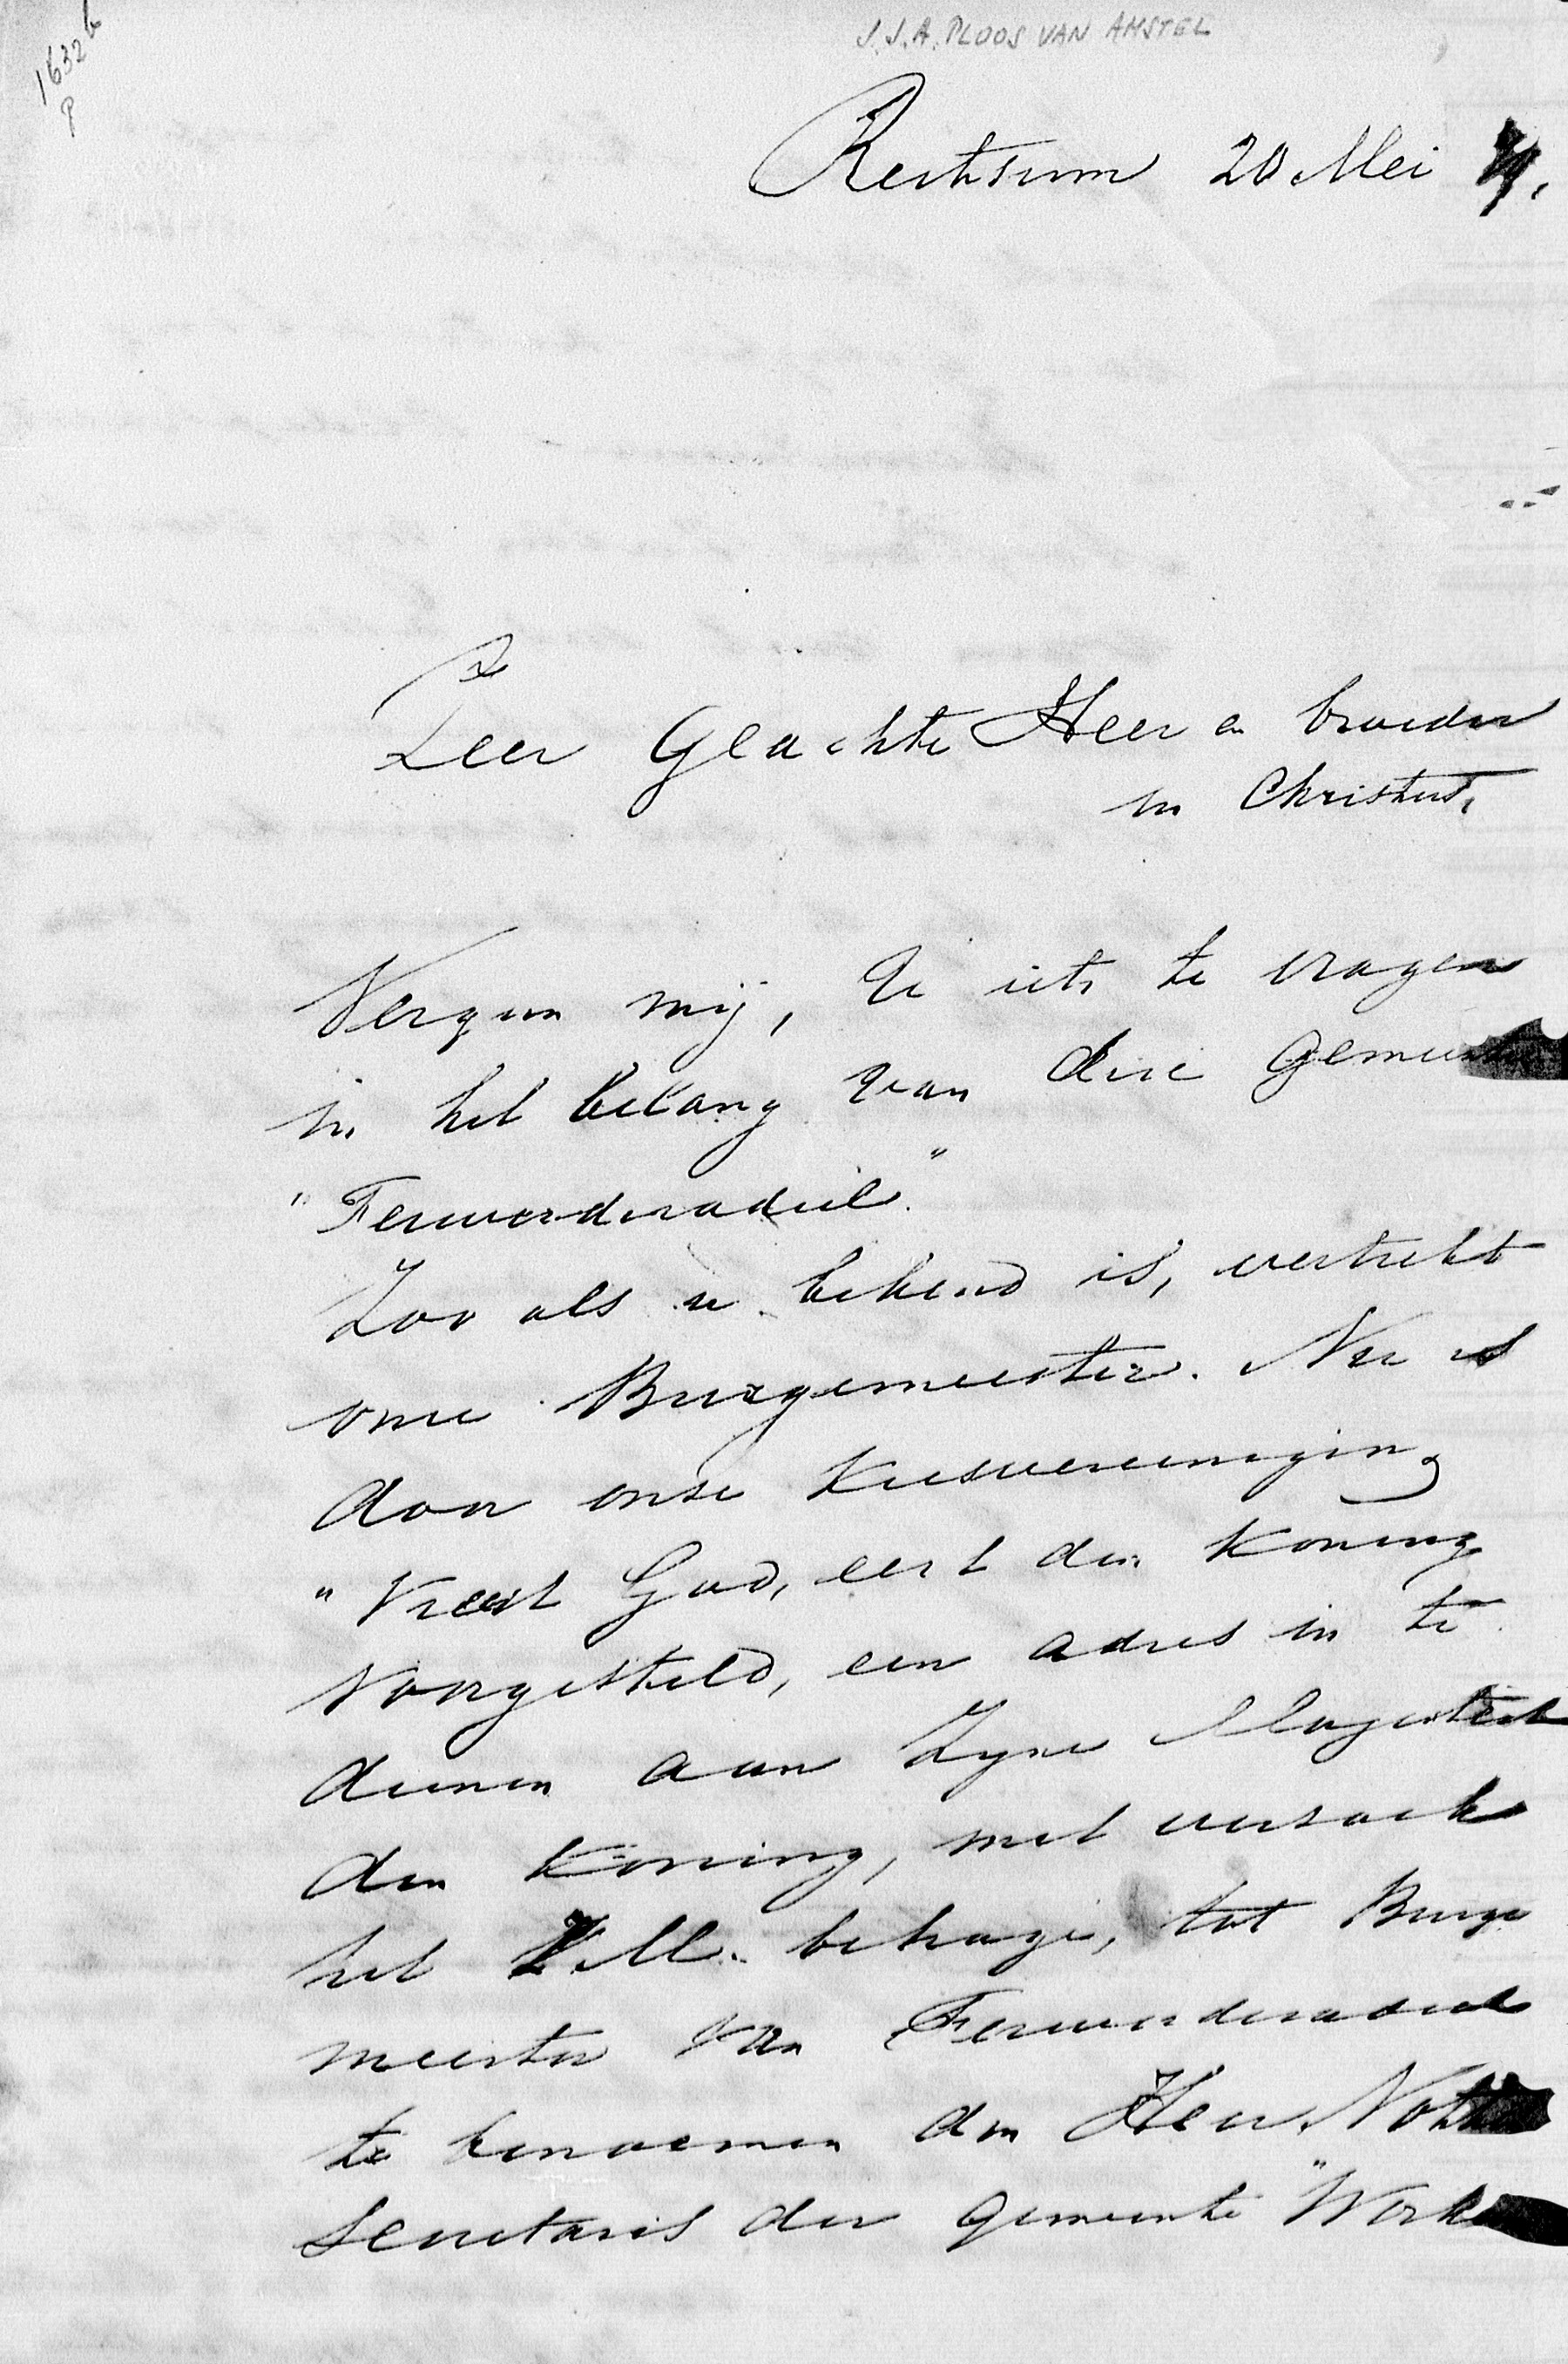 1632b
P
J.J.A. PLOOS VAN AMSTEL
Reitsum 20 Mei
Zeer Geachte Heer en broeder
in Christus,
Vergun mij, U iets te vragen
in het belang van deze Gemeente
"Ferwerderadeel."
Zoo als u bekend is, vertrekt
onze Burgemeester. Nu is
door onze Kiesvereeniging
"Vreest God, eert den Koning
voorgesteld, een adres in te
dienen aan Zyne Majesteit
den Koning, met verzoek
het Z.M. behage, tot Burge
meester van Ferwerderadeel
te benoemen den Heer
Secretaris der gemeente